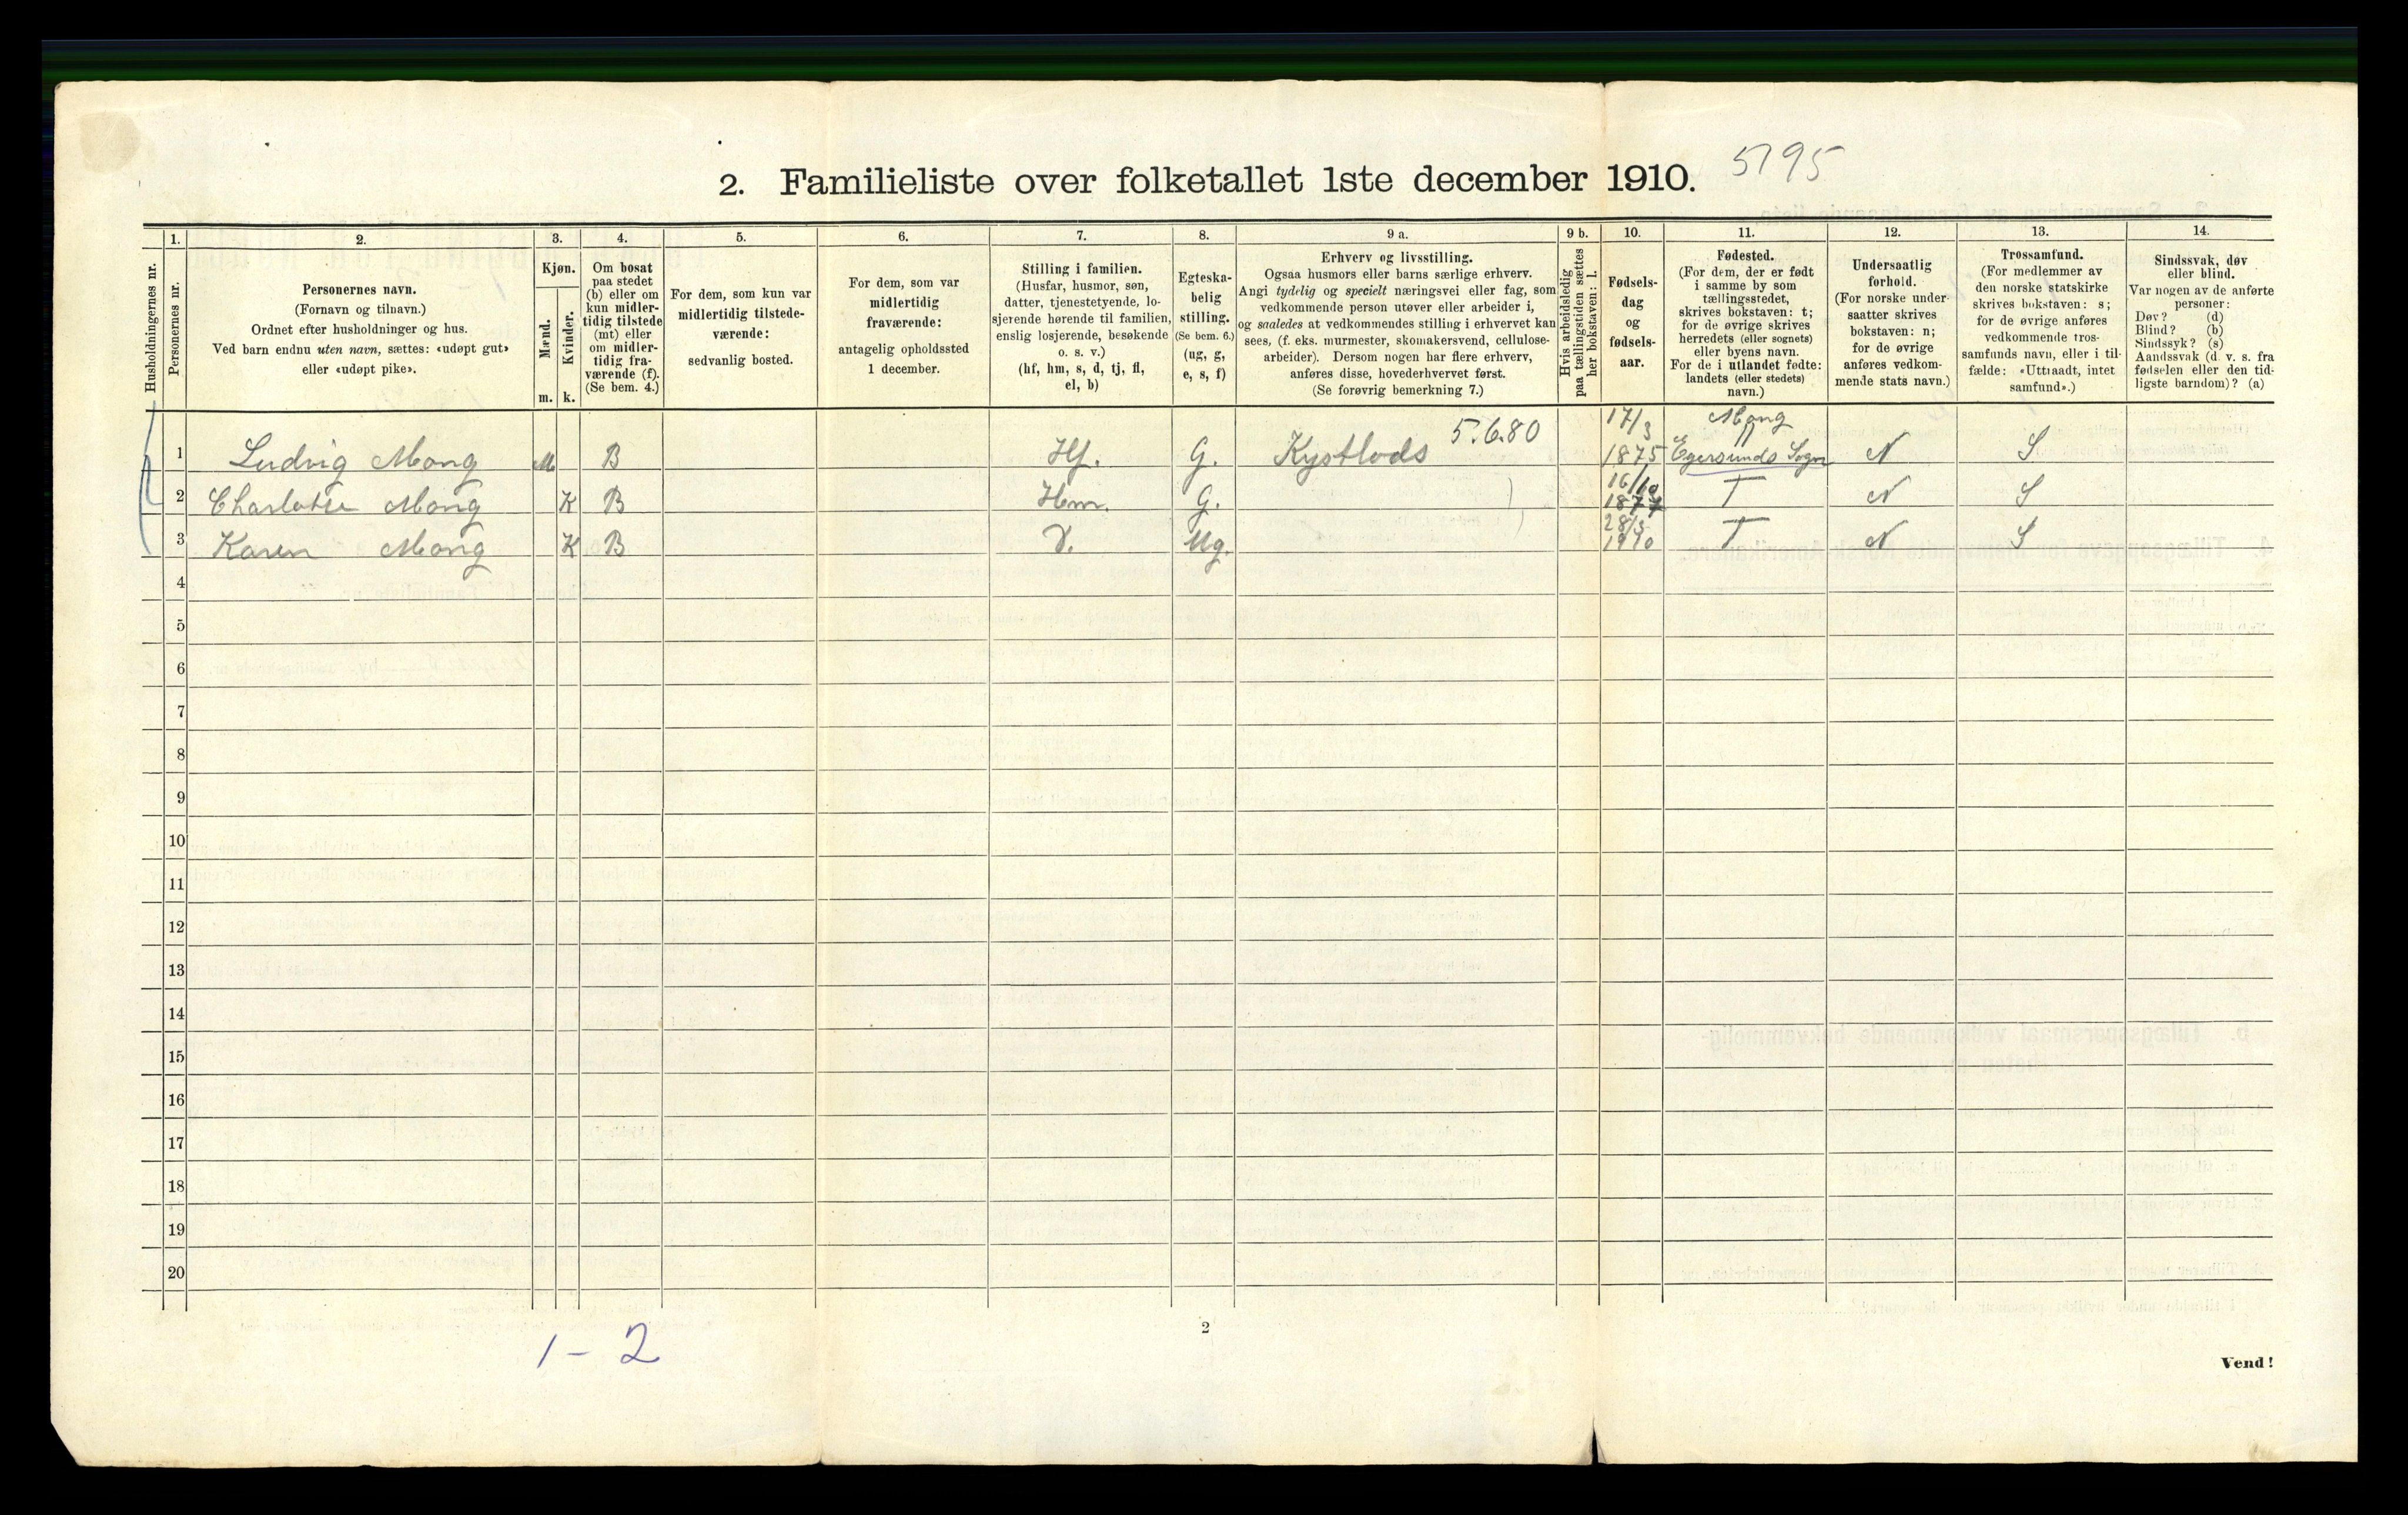 2. Familieliste over folketallet 1ste december 1910.
5795
Husholdningernes nr.
1.
Personernes nr.
2.
Personernes navn.
(Fornavn og tilnavn.)
Ordnet efter husholdninger og hus.
Ved barn endnu uten navn, sættes: «udøpt gut»
eller «udøpt pike».
3.
Kjøn.
Mænd.
Kvinder.
m. k.
4.
Om bosat
paa stedet
(b) eller om
kun midler-
tidig tilstede
(mt) eller
om midler-
tidig fra-
værende (f).
(Se bem. 4.)
5.
For dem, som kun var
midlertidig tilstede-
værende:
sedvanlig bosted.
6.
For dem, som var
midlertidig
fraværende:
antagelig opholdssted
1 december.
7.
Stilling i familien.
(Husfar, husmor, søn,
datter, tjenestetyende, lo-
sjerende hørende til familien,
enslig losjerende, besøkende
o. s. v.)
(hf, hm, s, d, tj, fl,
el, b)
8.
Egteska-
belig
stilling.
(Se bem. 6.)
(ug, g,
e, s, f)
9 a.
Erhverv og livsstilling.
Ogsaa husmors eller barns særlige erhverv.
Angi tydelig og specielt næringsvei eller fag, som
vedkommende person utøver eller arbeider i,
og saaledes at vedkommendes stilling i erhvervet kan
sees, (f. eks. murmester, skomakersvend, cellulose-
arbeider). Dersom nogen har flere erhverv,
anføres disse, hovederhvervet først.
(Se forøvrig bemerkning 7.)
9 b.
Hvis arbeidsledig
paa tællingstiden sættes
her bokstaven: l.
10.
Fødsels-
dag
og
fødsels-
aar.
11.
Fødested.
(For dem, der er født
i samme by som
tællingsstedet,
skrives bokstaven: t;
for de øvrige skrives
herredets (eller sognets)
eller byens navn.
For de i utlandet fødte:
landets (eller stedets)
navn.)
12.
Undersaatlig
forhold.
(For norske under-
saatter skrives
bokstaven: n;
for de øvrige
anføres vedkom-
mende stats navn.)
13.
Trossamfund.
(For medlemmer av
den norske statskirke
skrives bokstaven: s;
for de øvrige anføres
vedkommende tros-
samfunds navn, eller i til-
fælde: «Uttraadt, intet
samfund».)
14.
Sindssvak, døv
eller blind.
Var nogen av de anførte
personer:
Døv? (d)
Blind? (b)
Sindssyk? (s)
Aandssvak (d. v. s. fra
fødselen eller den tid-
ligste barndom)? (a)
5.6.80 17/3 Mong
1 Ludvig Mong M B Hf. G. Kystlods 1875 Egersunds Sogn N S
16/10
2 Charlotte Mong K B Hm. G. 1877 T N S
28/5
3 Karen Mong K B D. Ug. 1910 T N S
4
5
6
7
8
9
10
11
12
13
14
15
16
17
18
19
20
1 - 2
2
Vend!